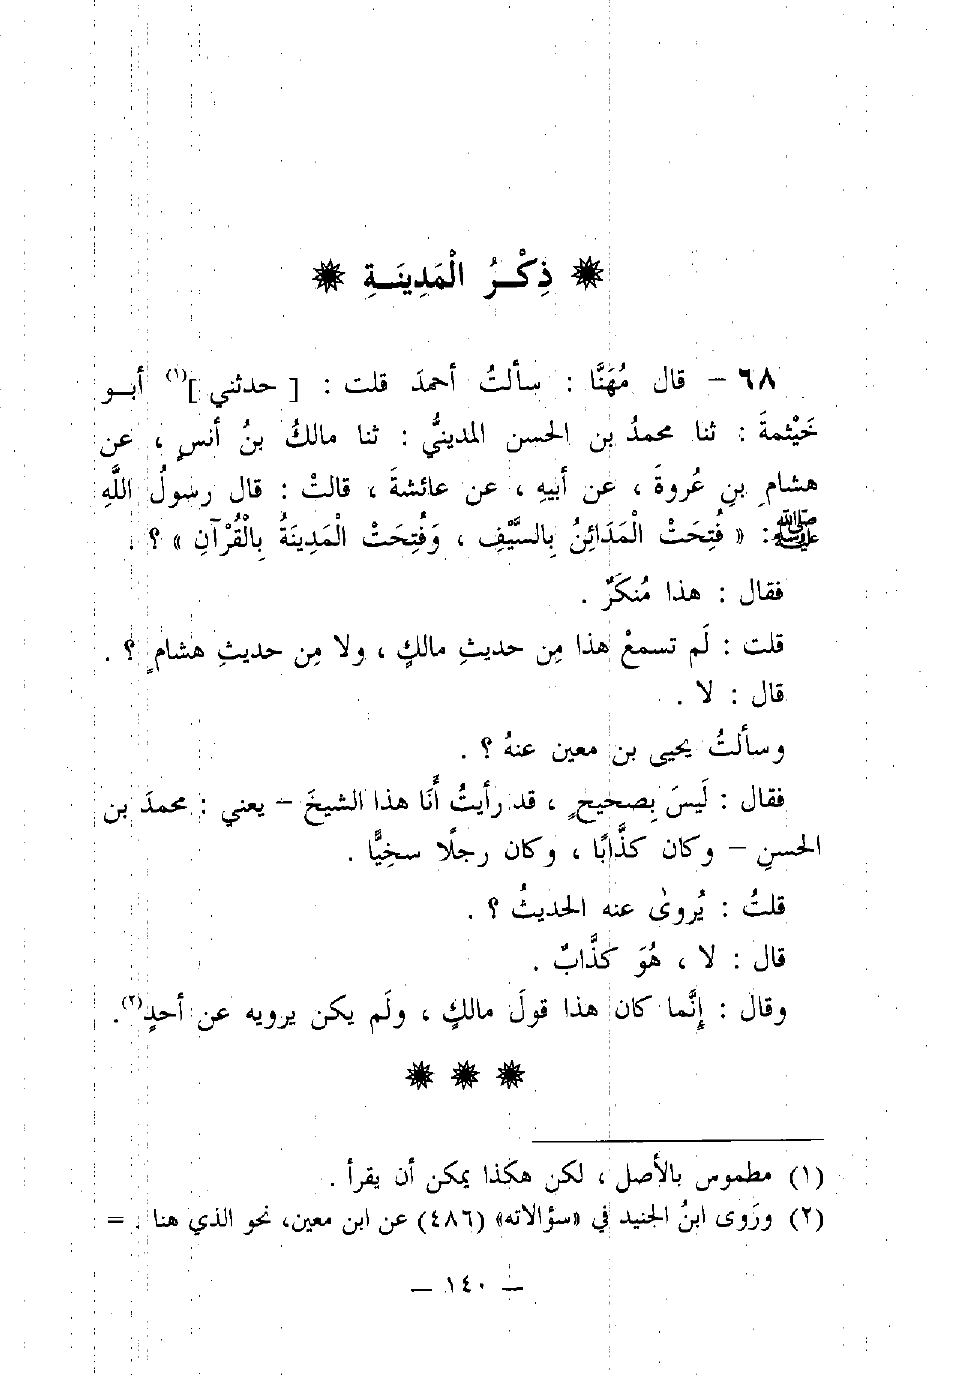 ذِكْـرُ الْمَدِينَـةِ
٦٨ – قال مُهَنَّا : سألتُ أحمدَ قلت : [ حدثني ](١) أبـو
خَيْثمةَ : ثنا محمدُ بن الحسن المدينيُّ : ثنا مالكُ بنُ أنسٍ ، عن
هشامِ بنِ عُروةَ ، عن أبيهِ ، عن عائشةَ ، قالتْ : قال رسولُ اللَّهِ
ﷺ: « فُتِحَتْ الْمَدَائِنُ بِالسَّيْفِ ، وَفُتِحَتْ الْمَدِينَةُ بِالْقُرْآنِ » ؟ .
فقال : هذا مُنكَرٌ .
قلت : لَم تسمعْ هذا مِن حديثِ مالكٍ ، ولا مِن حديثِ هشامٍ ؟ .
قال : لا .
وسألتُ يحيى بن معين عنهُ ؟ .
فقال : لَيسَ بِصحيحٍ ، قد رأيتُ أَنَا هذا الشيخَ – يعني : محمدَ بن
الحسنِ – وكان كذَّابًا ، وكان رجلًا سخِيًّا .
قلتُ : يُروىٰ عنه الحديثُ ؟ .
قال : لا ، هُوَ كذَّابٌ .
وقال : إِنَّما كان هذا قولَ مالكٍ ، ولَم يكن يرويه عن أحدٍ(٢).
(١) مطموس بالأصل ، لكن هكذا يمكن أن يقرأ .
(٢) ورَوى ابنُ الجنيد في «سؤالاته» (٤٨٦) عن ابن معين، نحو الذي هنا . =
– ١٤٠ –